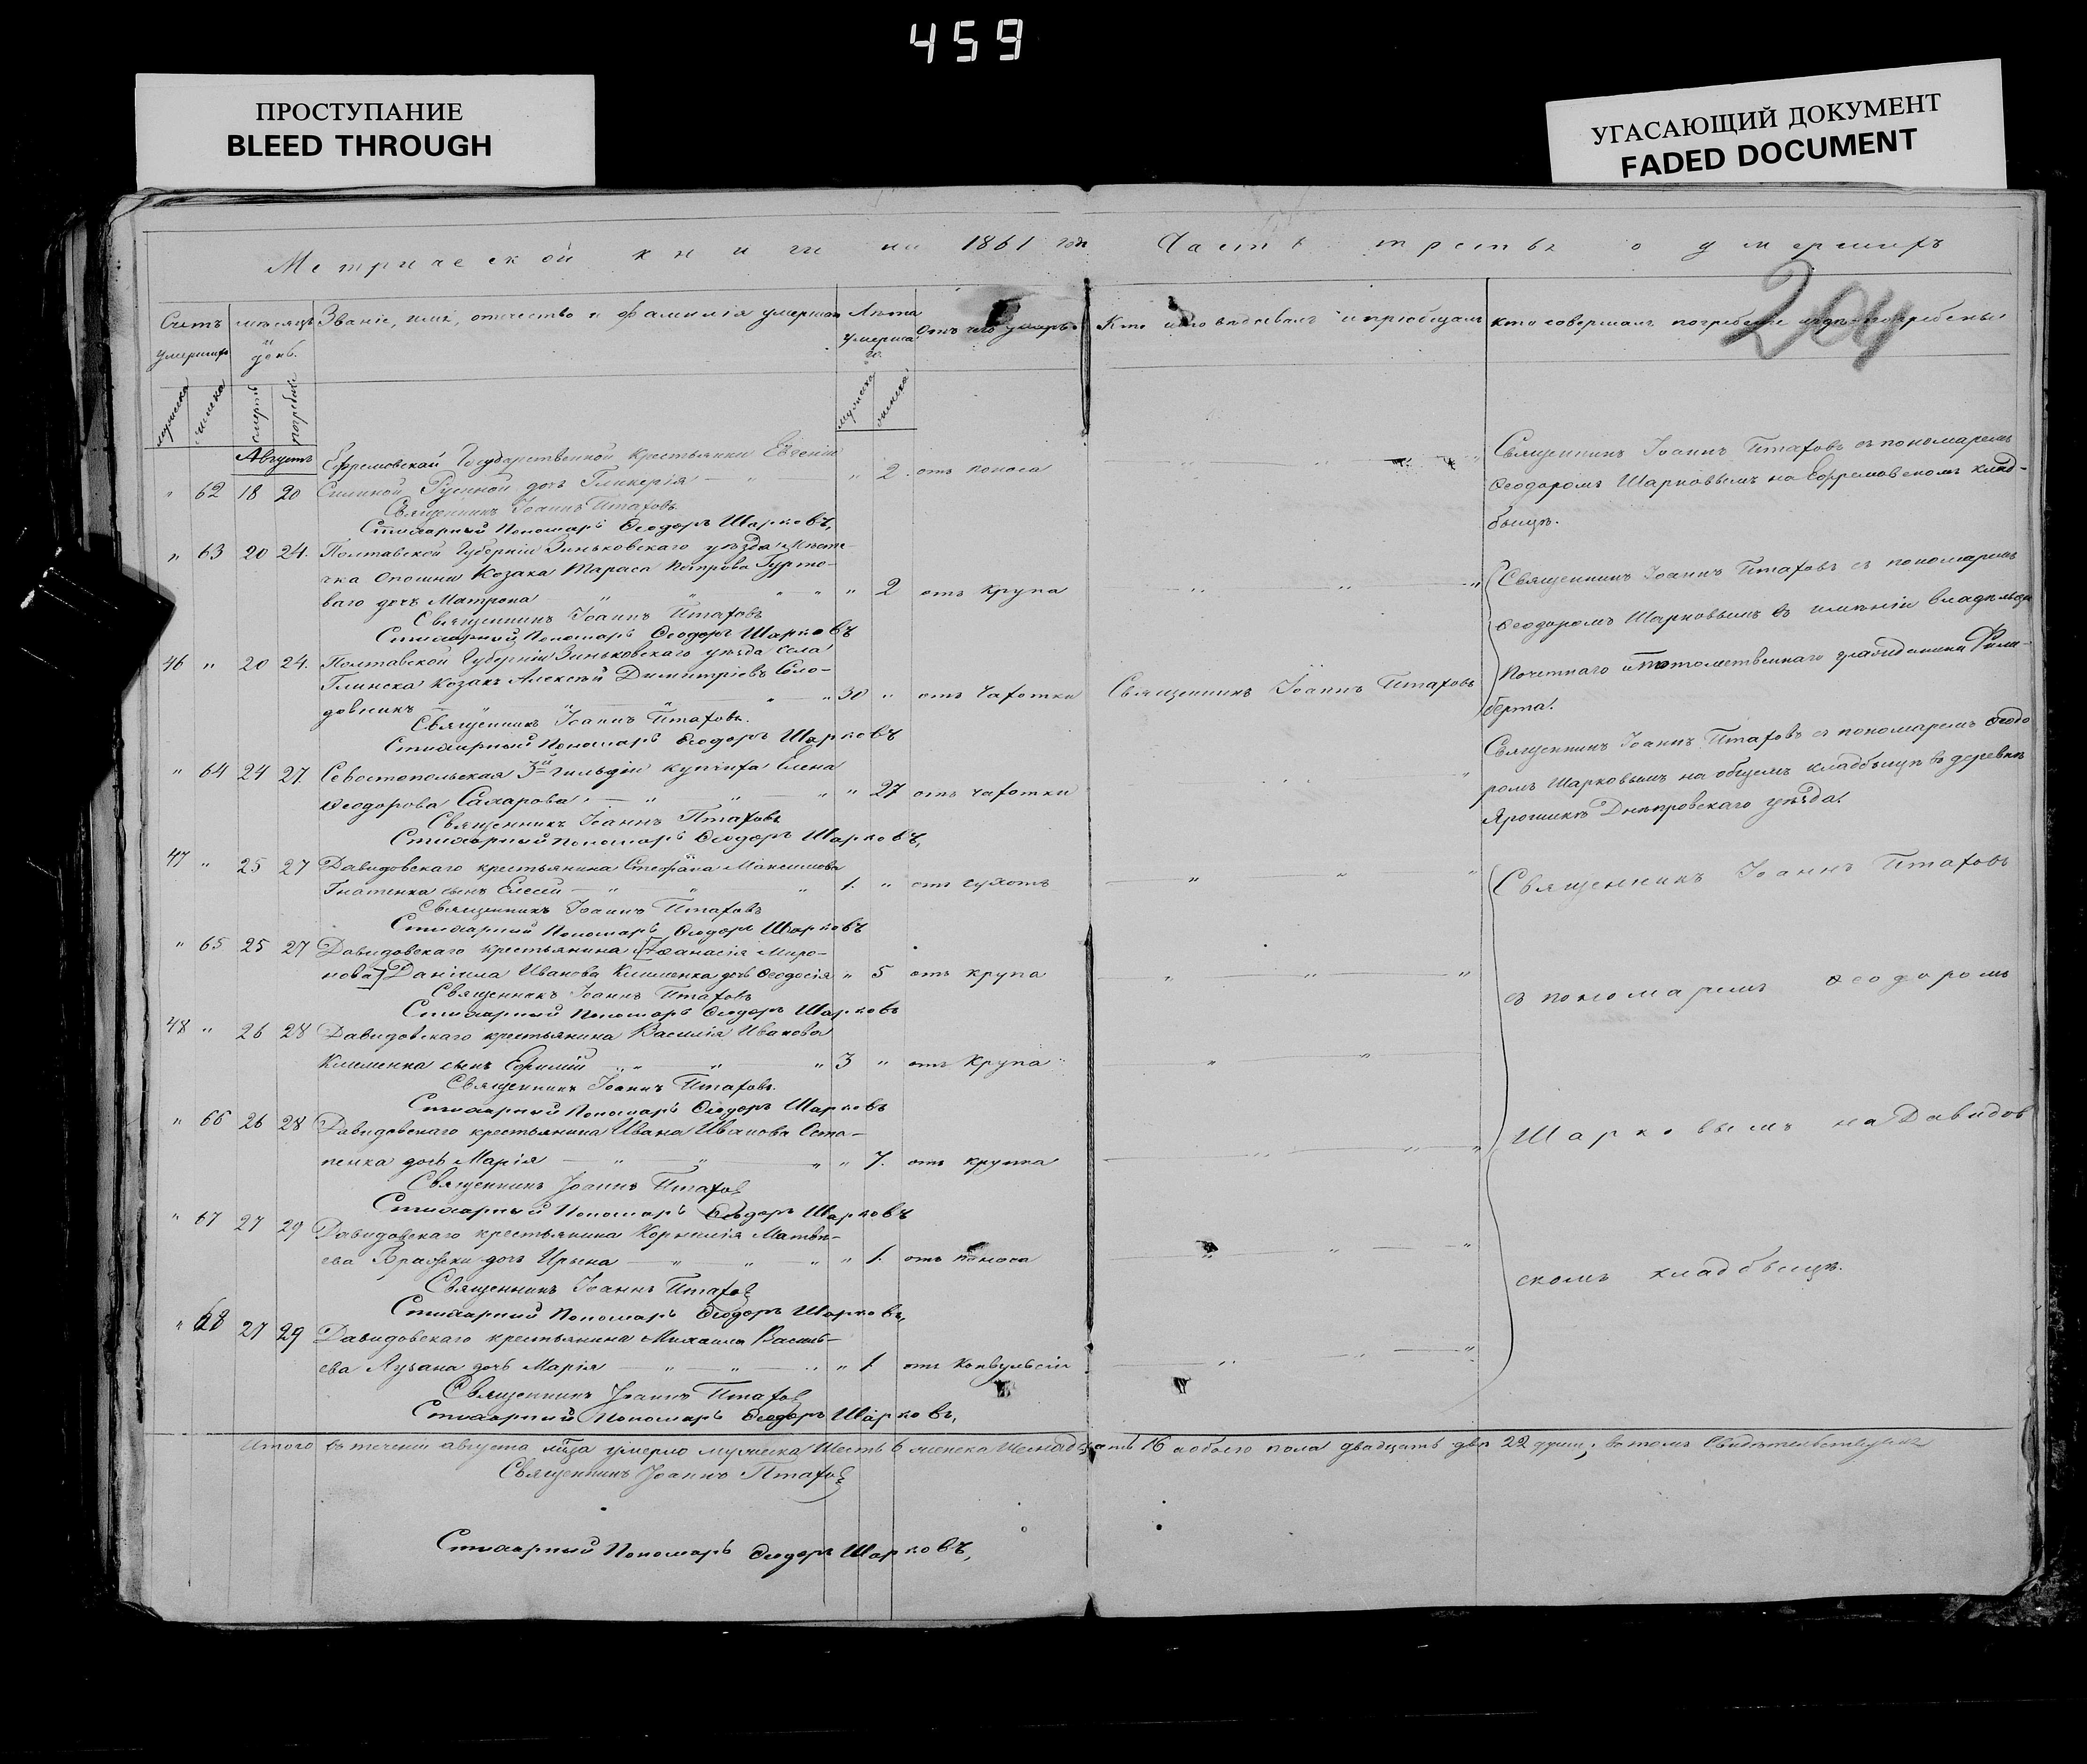 459
ПРОСТУПАНИЕ
BLEED THROUGH
УГАСАЮЩИЙ ДОКУМЕНТ
FADED DOCUMENT
Метрической книги на 1861 годъ Часть третья о умершихъ
204
Счетъ умершихъ
мужеска
женска
мѣсяцъ и день.
смерти
погребенія
Званіе, имя, отечество и фамилія умершаго
Лѣта умершаго.
мужеска
женска
Отъ чего умеръ.
Кто исповѣдывалъ и пріобщалъ
кто совершалъ погребеніе и гдѣ погребены
Августъ
Ефремовской Государственной крестьянки Евгеніи
" 62 18 20 дочь Гликерія " 2 отъ поноса
Священникъ Іоаннъ Птаховъ
Стихарный Пономарь Ѳеодоръ Шарковъ,
Священникъ Іоаннъ Птаховъ съ пономаремъ
Ѳеодоромъ Шарковымъ на Ефремовскомъ клад-
бищѣ.
" 63 20 24. Полтавской Губерніи Зиньковскаго уѣзда Мѣсте-
чка Опошни Козака Тараса Петрова Гурто-
ваго дочь Матрона " 2 отъ крупа
Священникъ Іоаннъ Птаховъ
Стихарный Пономарь Ѳеодоръ Шарковъ
Священникъ Іоаннъ Птаховъ съ пономаремъ
Ѳеодоромъ Шарковымъ въ имѣніи владѣльца
Почетнаго и Потомственнаго гражданина Фили-
берта.
46 " 20 24. Полтавской Губерніи Зиньковскаго уѣзда села
Глинска Козакъ Алексѣй Димитріевъ Соло-
довникъ 30 " отъ Чахотки Священникъ Іоаннъ Птаховъ
Священникъ Іоаннъ Птаховъ.
Стихарный Пономарь Ѳеодоръ Шарковъ
" 64 24 27 Севостопольская 3й гильдіи купчиха Елена
Ѳеодорова Сахарова " 27 отъ чахотки
Священникъ Іоаннъ Птаховъ
Стихарный пономарь Ѳеодоръ Шарковъ,
Священникъ Іоаннъ Птаховъ съ пономаремъ Ѳеодо
ромъ Шарковымъ на общемъ кладбищѣ въ деревнѣ
Днѣпровскаго уѣзда.
47 " 25 27 Давидовскаго крестьянина Стефана Максимова
Гнатенка сынъ Елисей 1. " отъ сухотъ
Священникъ Іоаннъ Птаховъ
Стихарный Пономарь Ѳеодоръ Шарковъ
" 65 25 27 Давидовскаго крестьянина [Аѳанасія Миро-
нова] Даніила Иванова Клименка дочь Ѳеодосія " 5 отъ крупа
Священникъ Іоаннъ Птаховъ
Стихарный Пономарь Ѳеодоръ Шарковъ
48 " 26 28 Давидовскаго крестьянина Василія Иванова
Клименка сынъ Ефимій 3 " отъ Крупа
Священникъ Іоаннъ Птаховъ.
Стихарный Пономарь Ѳеодоръ Шарковъ
" 66 26 28 Давидовскаго крестьянина Ивана Иванова Оста-
пенка дочь Марія " 7. отъ круппа
Священникъ Іоаннъ Птаховъ
Стихарный Пономарь Ѳеодоръ Шарковъ
" 67 27 29 Давидовскаго крестьянина Корнилія Матвѣ-
ева дочь Ирына " 1. отъ поноса
Священникъ Іоаннъ Птаховъ
Стихарный Пономарь Ѳеодоръ Шарковъ,
" 68 27 29 Давидовскаго крестьянина Михаила Василь-
ева Лузана дочь Марія " 1 отъ Конвульсіи
Священникъ Іоаннъ Птаховъ
Стихарный Пономарь Ѳеодоръ Шарковъ,
Священникъ Іоаннъ Птаховъ
съ пономаремъ Ѳеодоромъ
Шарковымъ на Давидов
скомъ кладбищѣ.
Итого въ теченіи августа мѣца умерло мужеска Шесть 6 женска Шестнадцать 16 а обоего пола двадцать два 22 души, въ томъ Свидѣтельствуемъ
Священникъ Іоаннъ Птаховъ
Стихарный Пономарь Ѳеодоръ Шарковъ,